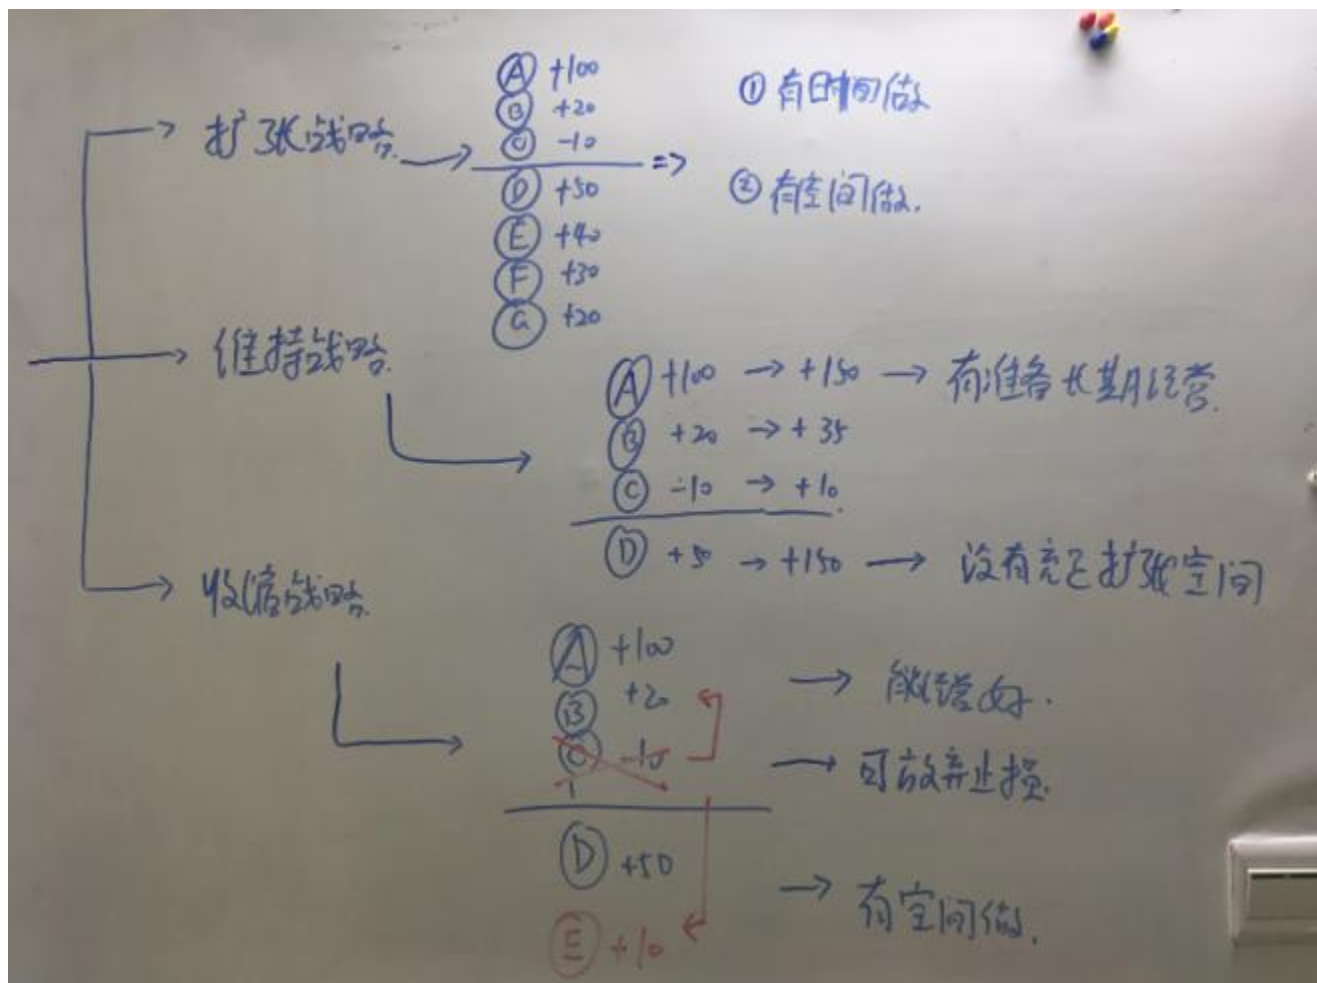 扩张战略
Ⓐ +100
Ⓑ +20
Ⓒ -10
Ⓓ +50
Ⓔ +40
Ⓕ +30
Ⓖ +20
① 有时间做
② 有空间做.
维持战略
Ⓐ +100 → +150 → 有准备长期经营.
Ⓑ +20 → +35
Ⓒ -10 → +10.
Ⓓ +50 → +150 → 没有充足扩张空间
收缩战略
Ⓐ +100 → 能经营好.
Ⓑ +20
Ⓒ -10 → 可放弃止损.
Ⓓ +50 → 有空间做.
Ⓔ +10